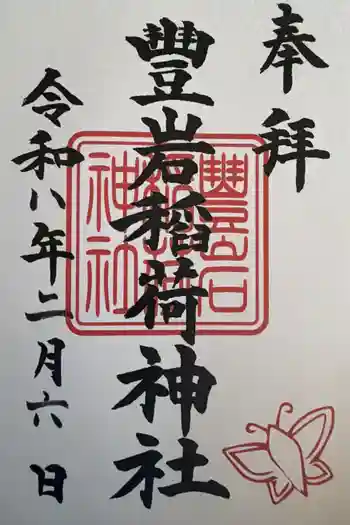 奉拝
豐岩稲荷神社
令和八年二月六日
豐岩
稲荷
神社